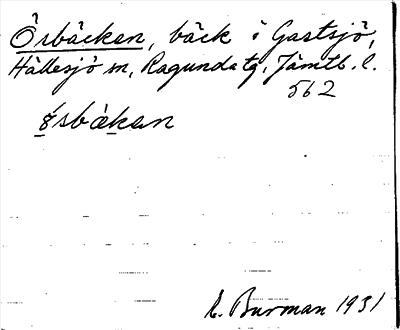 Örbäcken, bäck i Gastsjö,
Hällesjö sn, Ragunda tg, Jämtl. l.
562
ø̀rsbàkan
C. Burman 1931